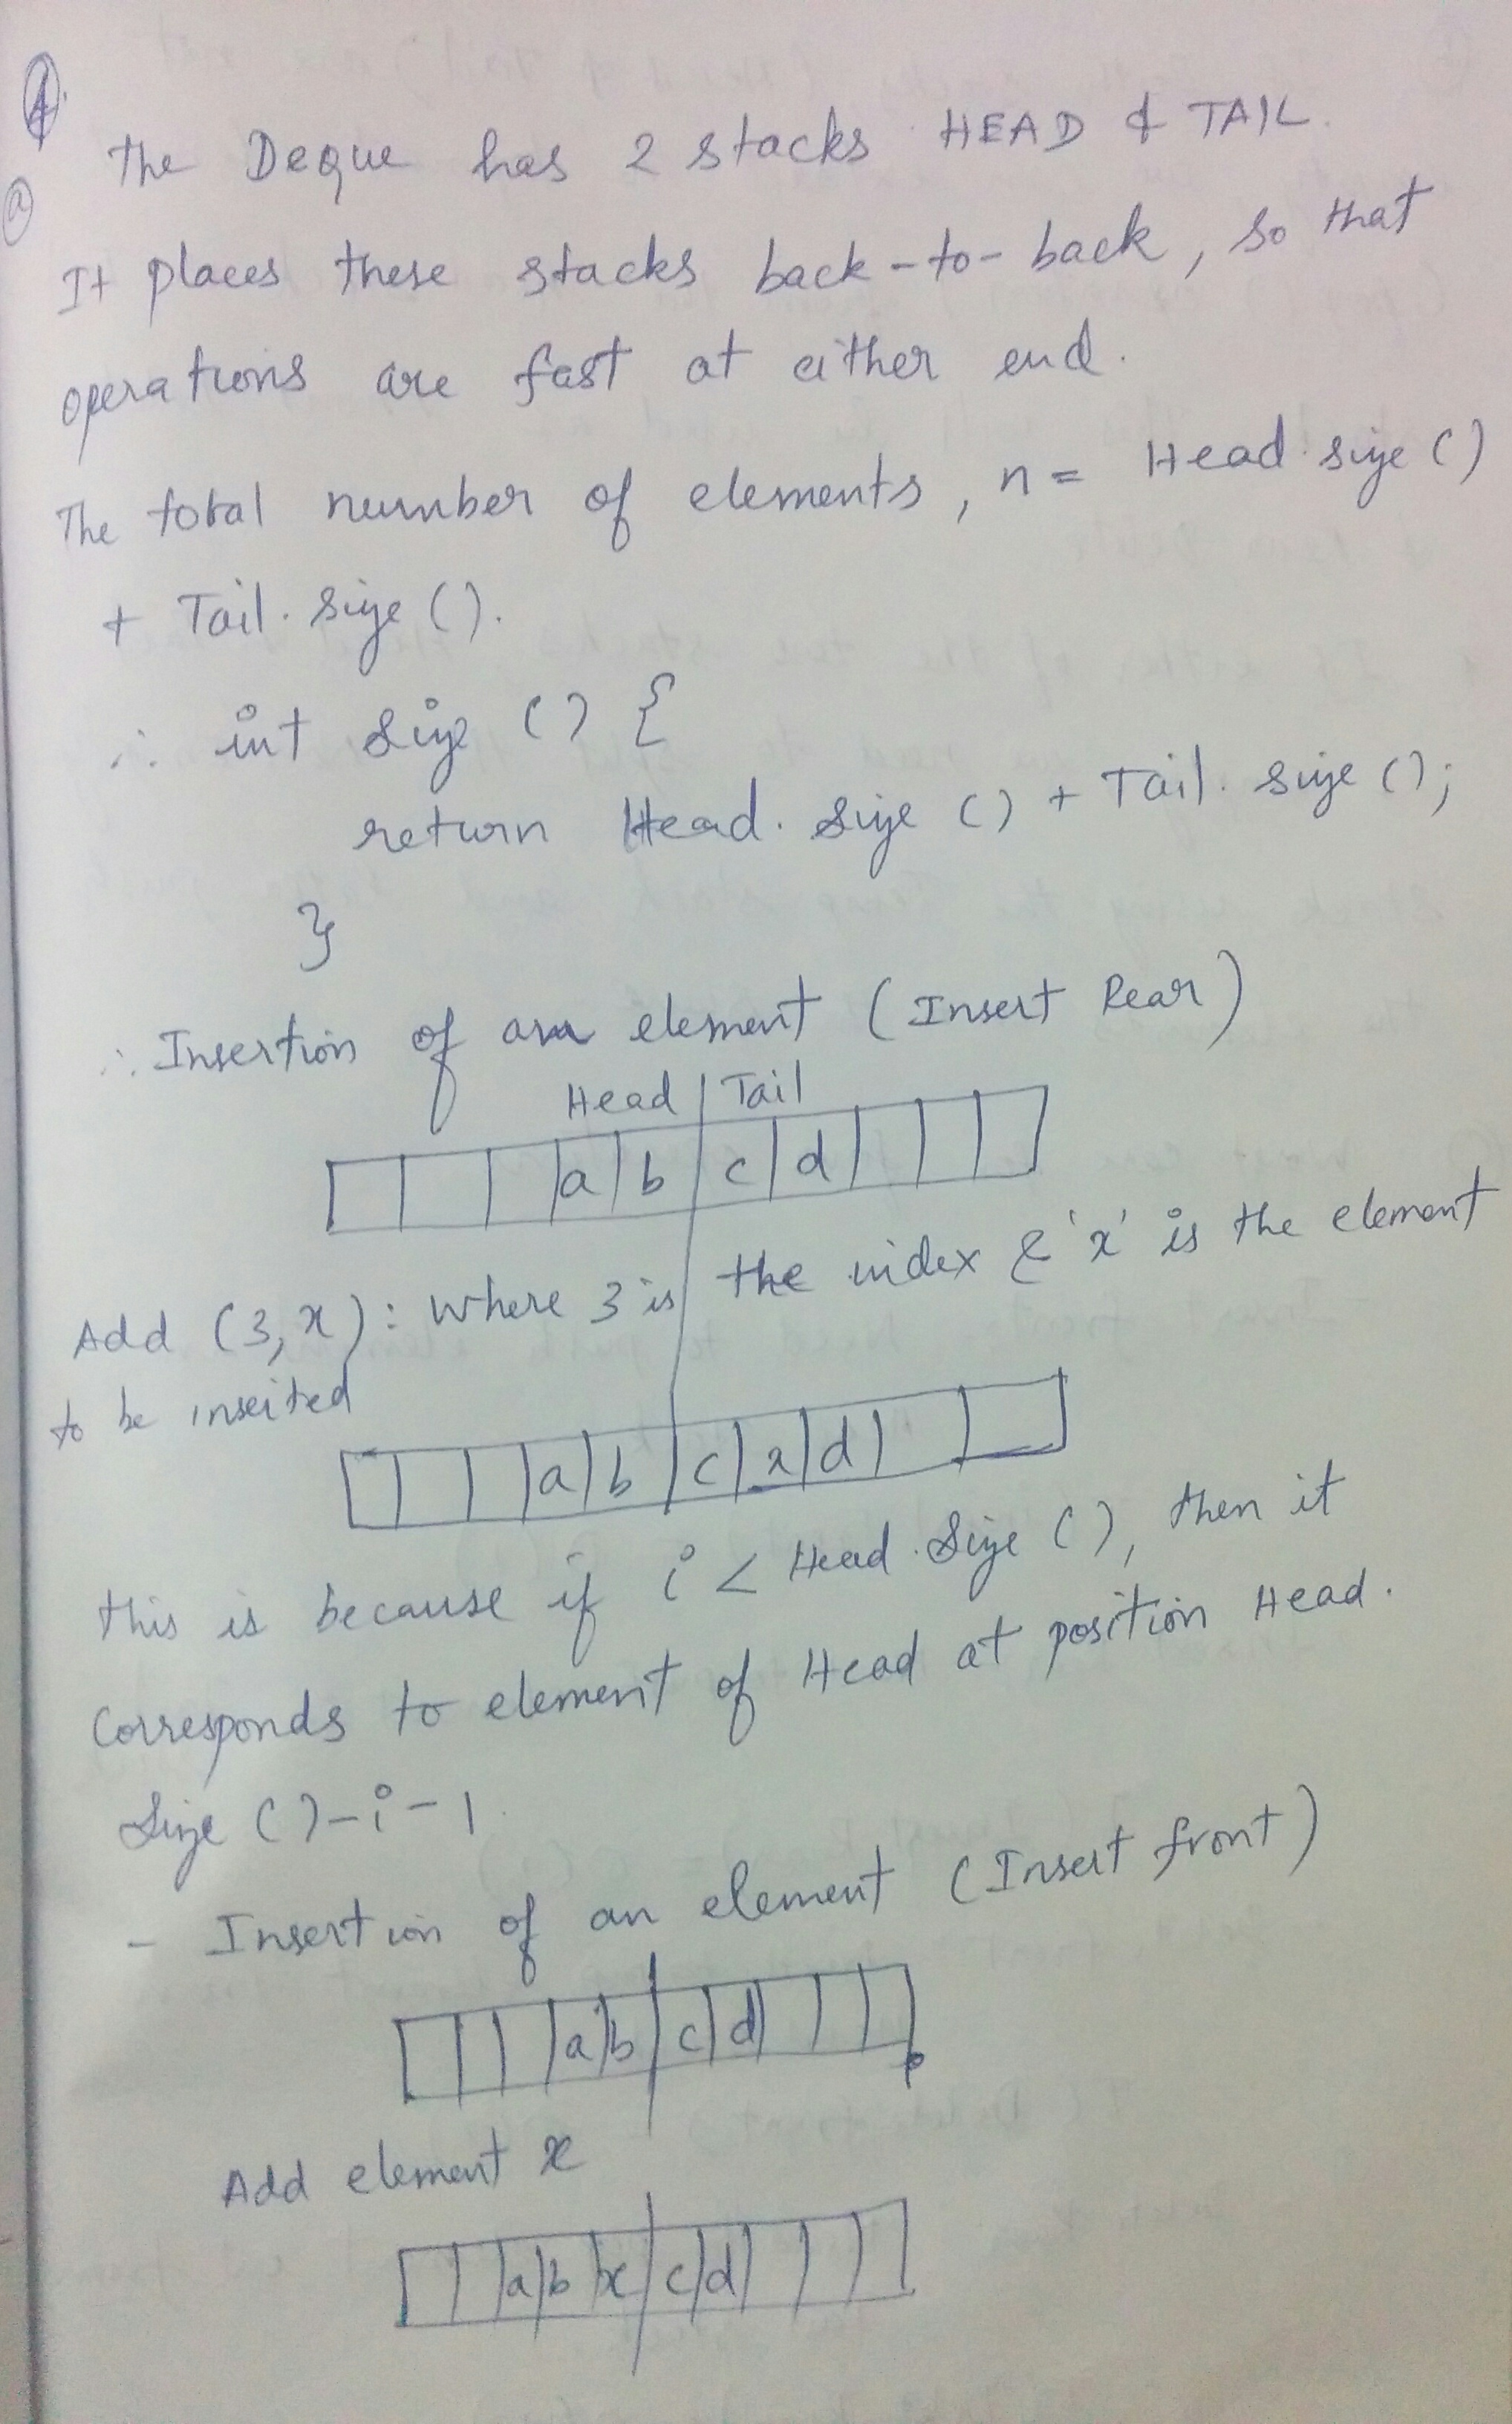 1.
a
The Deque has 2 stacks HEAD & TAIL.
It places these stacks back-to-back, so that
operations are fast at either end.
The total number of elements, n = Head.size()
+ Tail.size().
∴ int size () {
return Head.size () + Tail.size ();
}
∴ Insertion of an element (Insert Rear)
Head | Tail
a b c d
Add (3,x): where 3 is the index & 'x' is the element
to be inserted
a b c x d
this is because if i < Head.size (), then it
corresponds to element of Head at position Head.
size ()-i-1.
- Insertion of an element (Insert front)
a b c d
Add element x
a b x c d